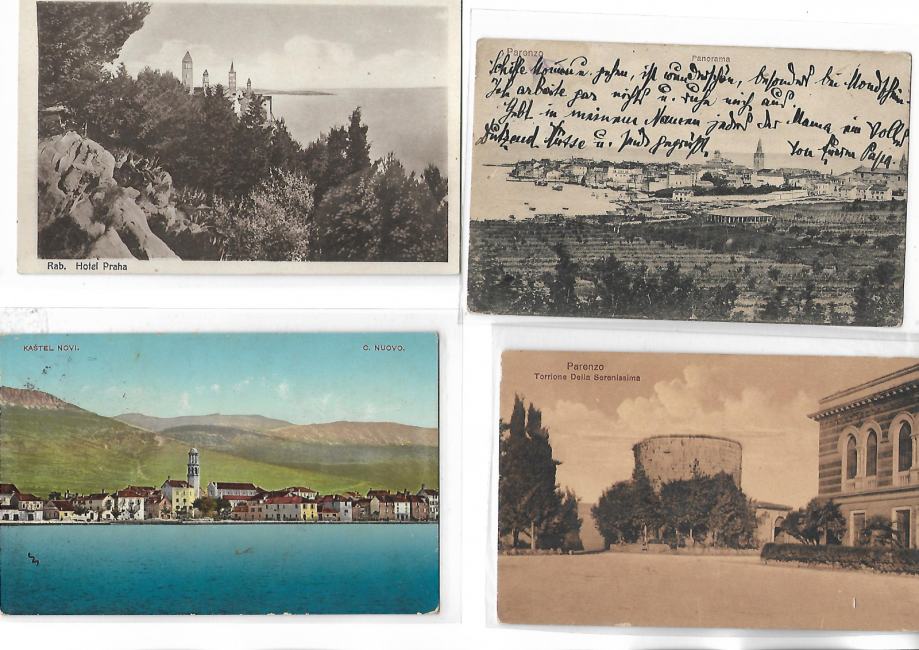 Rab. Hotel Praha
Parenzo
Panorama
gehen, ist wunderschön, besonders bei Mondschein.
Ich arbeite gar nichts u. ruhe mich aus.
Gebt in meinem Namen jeder der Mama ein volles
Dutzend Küsse u. seid gegrüßt,
von Eurem Papa.
KAŠTEL NOVI.
C. NUOVO.
Parenzo
Torrione Della Serenissima